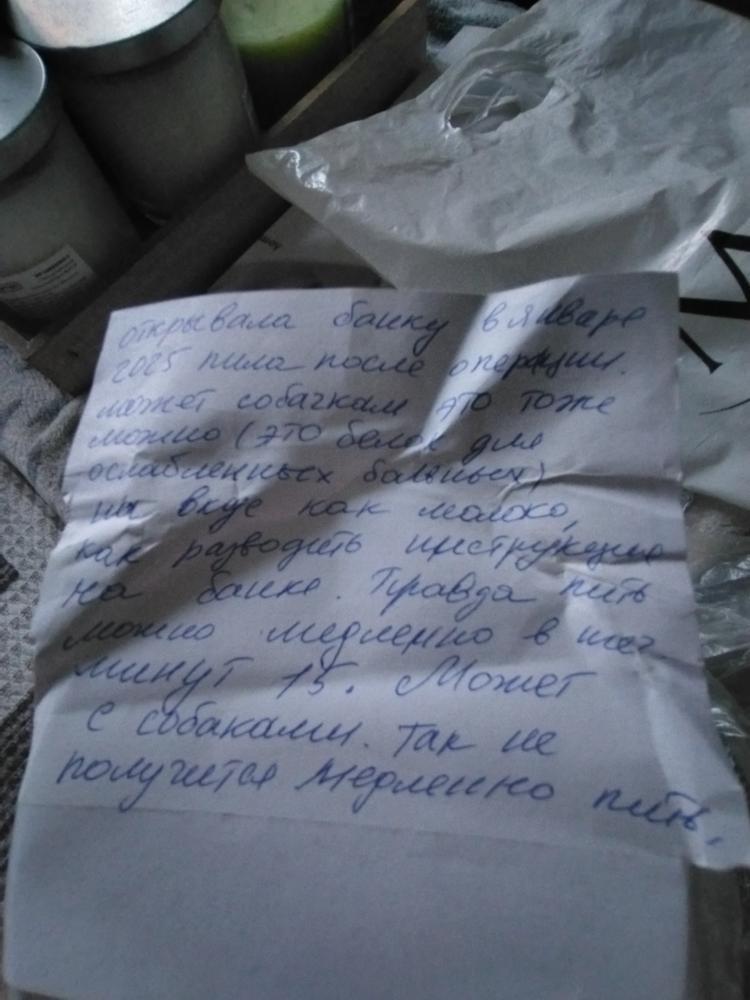 открывала банку в январе
2025 пила после операции.
может собачкам это тоже
можно (это белок для
ослабленных больных)
на вкус как молоко,
как разводить инструкция
на банке. Правда пить
можно медленно в теч
минут 15. Может
с собаками. Так не
получится медленно пить,
M